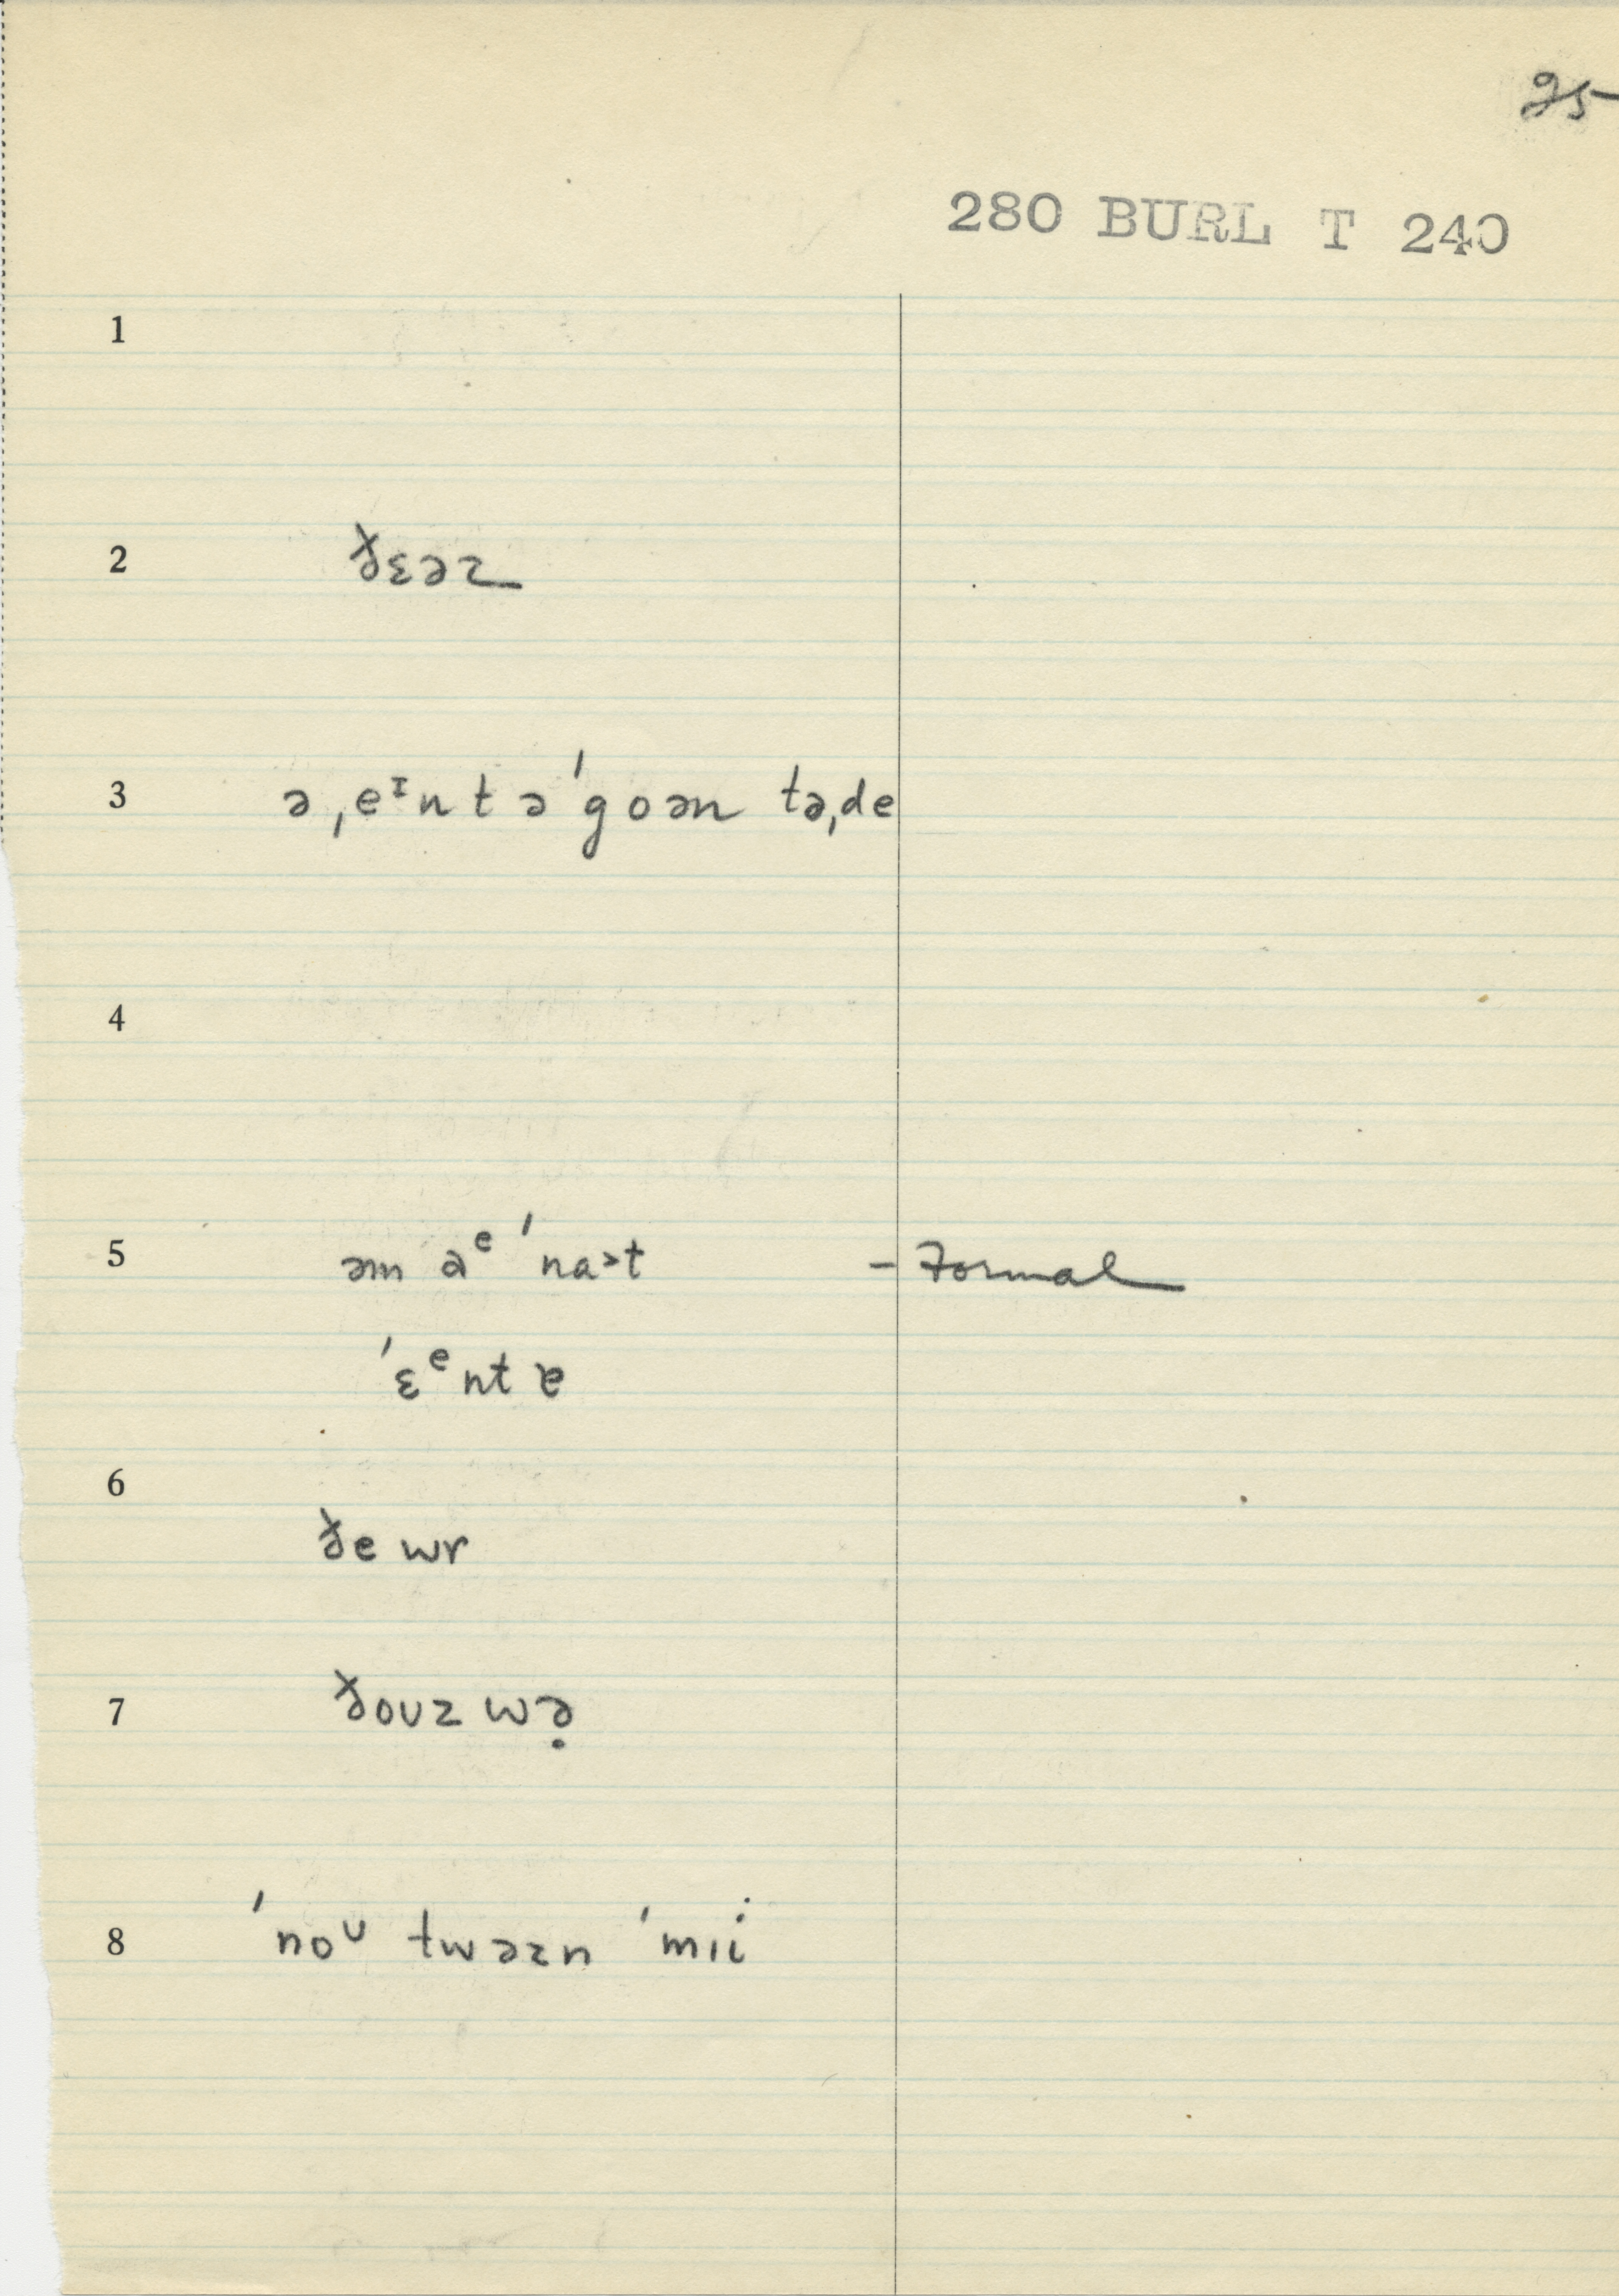 25
280 BURL T 240
1
2 ðɛəɹ
3 ə ˌeɪntəˈgoən təˌde
4
5 əm aᵉ ˈna>t - Formal
ˈɛᵉntɐ
6
ðe wr
7 ðoʊz wə̣
8 ˈnoᶷ twəzn ˈmɪi